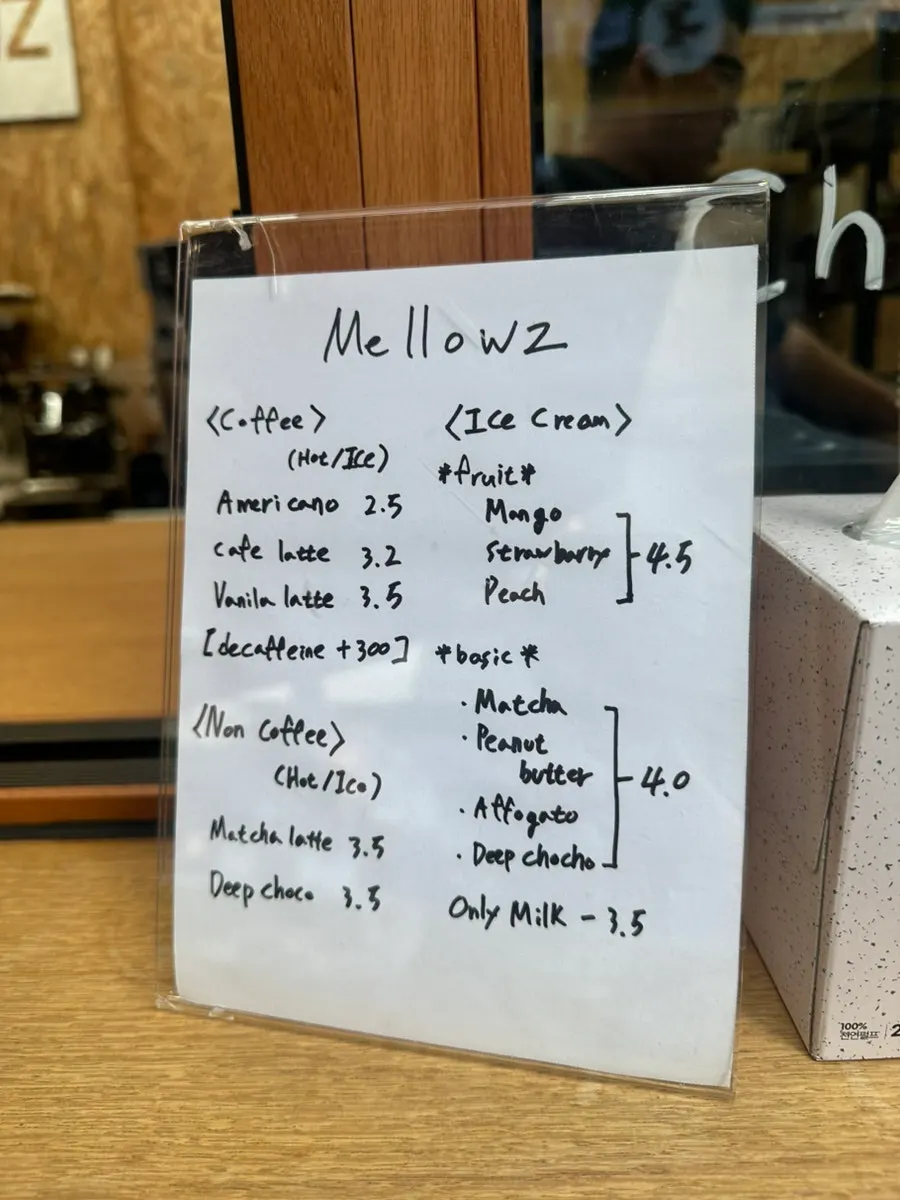 Z
h
Mellowz
<Coffee>
(Hot/Ice)
Americano 2.5
cafe latte 3.2
Vanila latte 3.5
[decaffeine +300]
<Non Coffee>
(Hot/Ice)
Matcha latte 3.5
Deep choco 3.5
<Ice Cream>
*fruit*
Mango
strawbarry
Peach
4.5
*basic*
· Matcha
· Peanut
butter
· Affogato
· Deep chocho
4.0
Only Milk - 3.5
100%
천연펄프
2